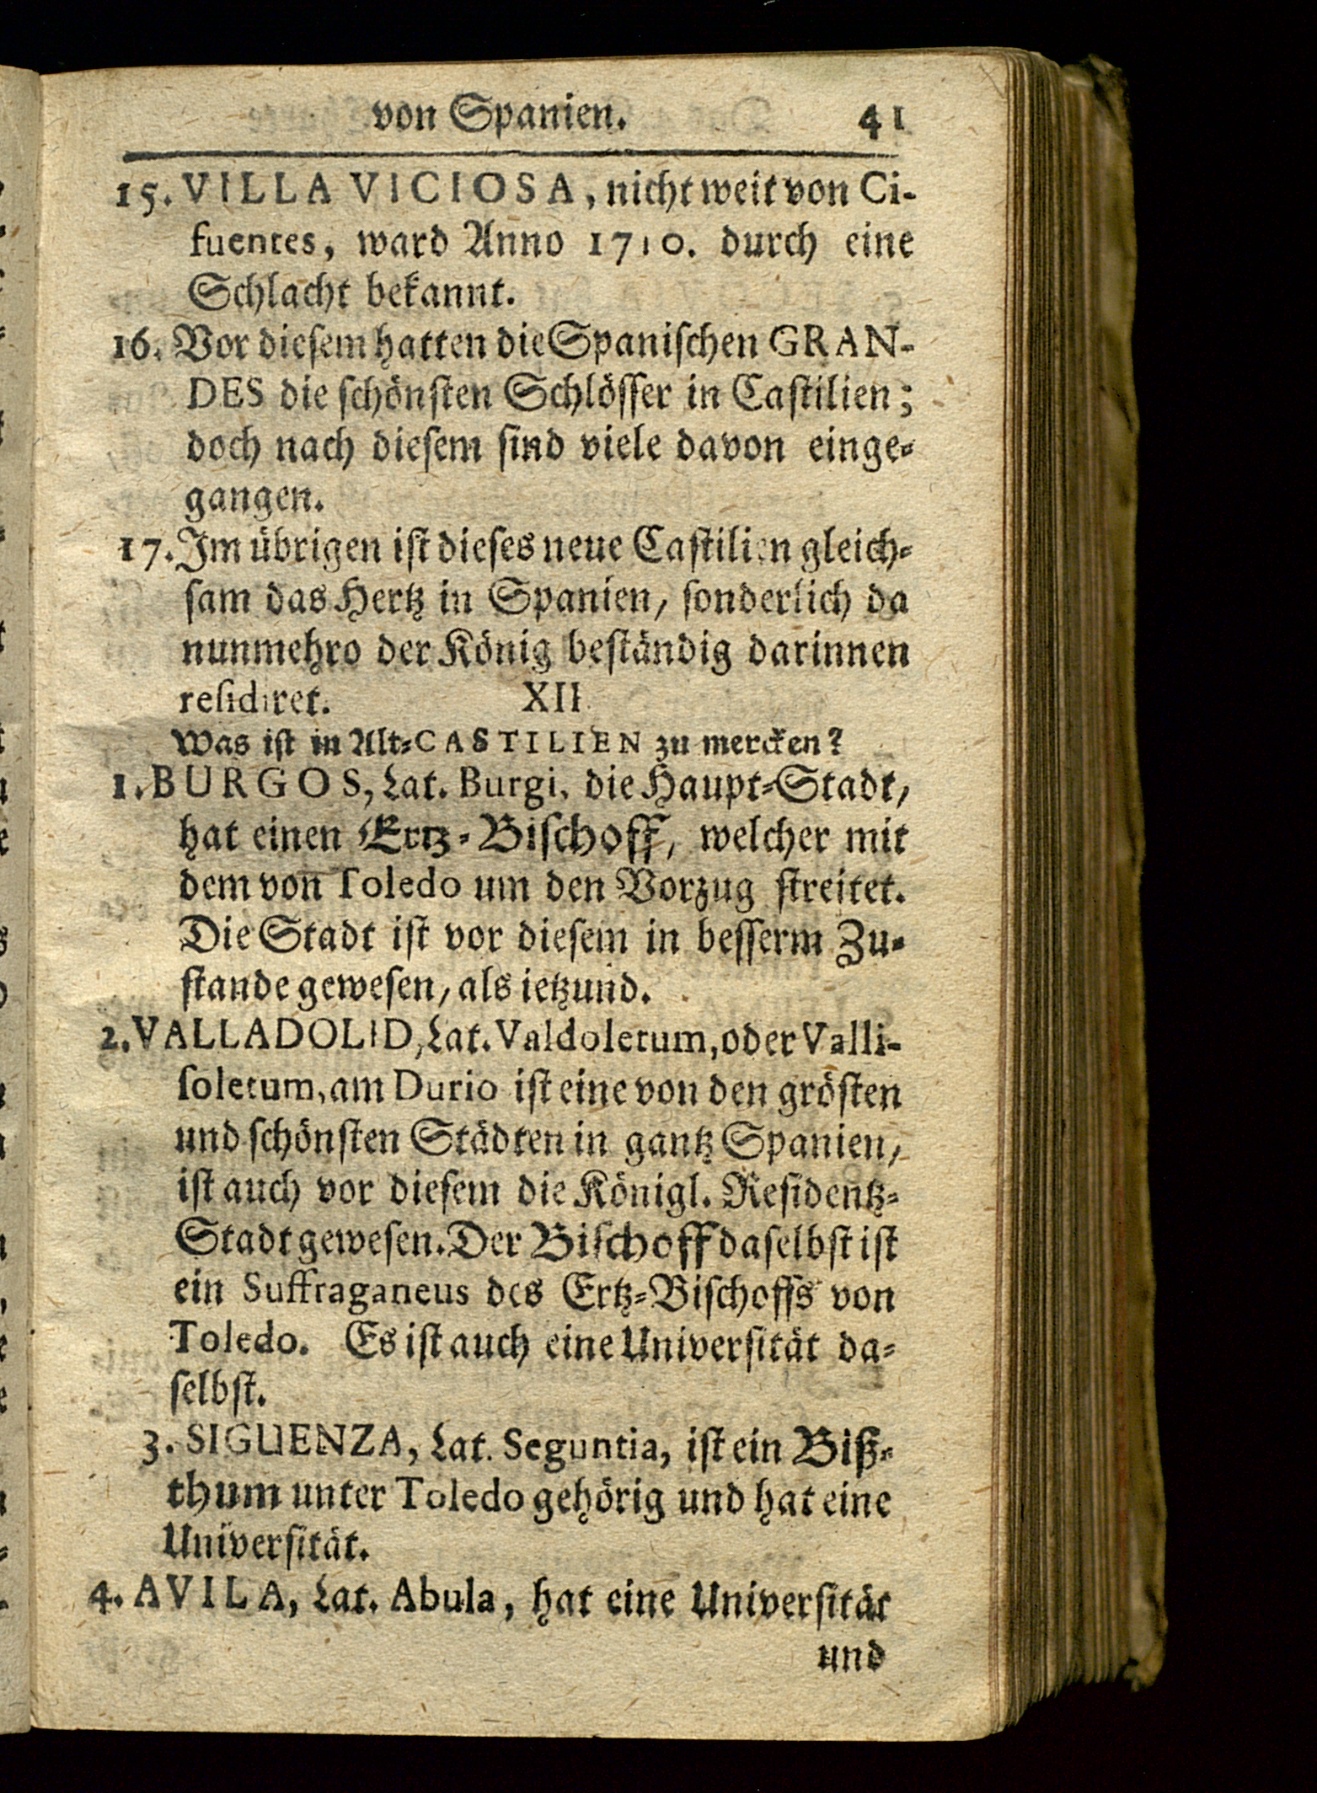 von Spanien. 41
15. VILLA VICIOSA, nicht weit von Ci-
fuentes, ward Anno 1710. durch eine
Schlacht bekannt.
16. Vor diesem hatten die Spanischen GRAN-
DES die schönsten Schlösser in Castilien;
doch nach diesem sind viele davon einge-
gangen.
17. Im übrigen ist dieses neue Castilien gleich-
sam das Hertz in Spanien, sonderlich da
nunmehro der König beständig darinnen
residiret. XII
Was ist in Alt-CASTILIEN zu mercken?
1. BURGOS, Lat. Burgi, die Haupt-Stadt,
hat einen Ertz-Bischoff, welcher mit
dem von Toledo um den Vorzug streitet.
Die Stadt ist vor diesem in besserm Zu-
stande gewesen, als ietzund.
2. VALLADOLID, Lat. Valdoletum, oder Valli-
soletum, am Durio ist eine von den grösten
und schönsten Städten in gantz Spanien,
ist auch vor diesem die Königl. Residentz-
Stadt gewesen. Der Bischoff daselbst ist
ein Suffraganeus des Ertz-Bischoffs von
Toledo. Es ist auch eine Universität da-
selbst.
3. SIGUENZA, Lat. Seguntia, ist ein Biß-
thum unter Toledo gehörig und hat eine
Universität.
4. AVILA, Lat. Abula, hat eine Universität
und